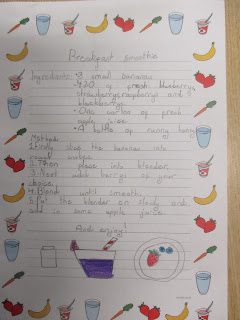 Breakfast smoothie
Ingredients: •3 small bananas
•420 g of fresh blueberrys,
strawberrys, raspberrys and
blackberrys.
•One carton of fresh
apple juice
•A bottle of runny honey
Method:
1. Firstly chop the bananas into
small
2. Then place into blender.
3. Next add berrys of your
choice.
4. Blend until smooth,
5. Put the blender on slowly and
add in some apple juice.
And enjoy!